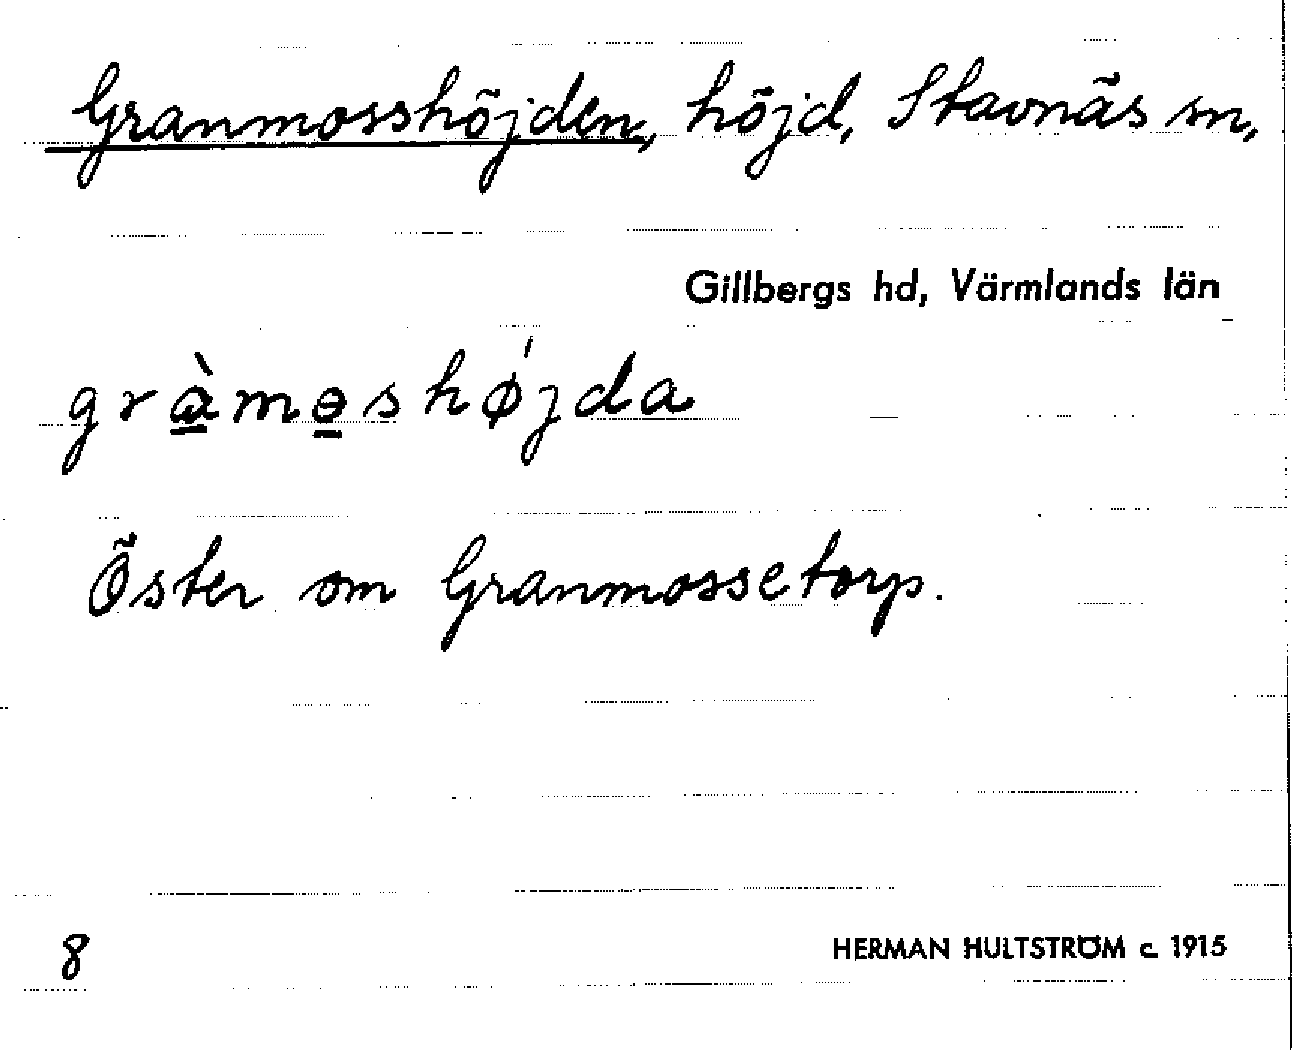 Granmosshöjden, höjd, Stavnäs sn,
Gillbergs hd, Värmlands län
gràməshǿjda
Öster om Granmossetorp.
8
HERMAN HULTSTRÖM c. 1915